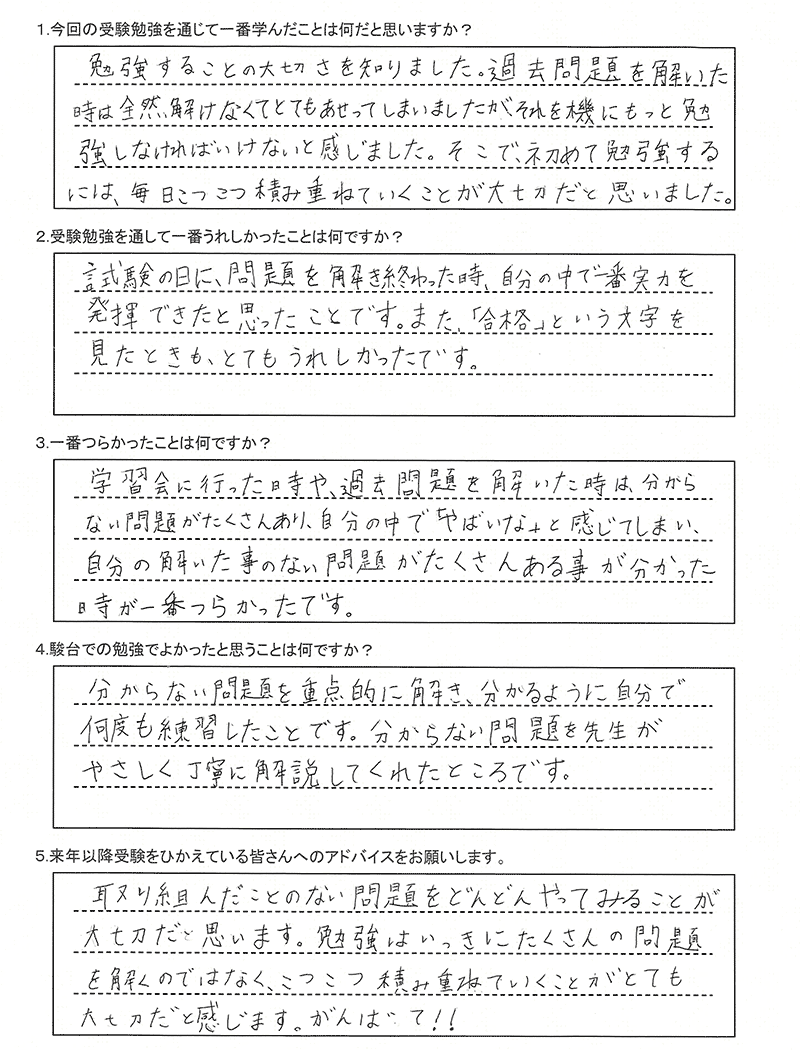 1.今回の受験勉強を通じて一番学んだことは何だと思いますか？
勉強することの大切さを知りました。過去問題を解いた
時は全然解けなくてとてもあせってしまいましたが、それを機にもっと勉
強しなければいけないと感じました。そこで、初めて勉強する
には、毎日こつこつ積み重ねていくことが大切だと思いました。
2.受験勉強を通して一番うれしかったことは何ですか？
試験の日に、問題を解き終わった時、自分の中で一番実力を
発揮できたと思ったことです。また、「合格」という文字を
見たときも、とてもうれしかったです。
3.一番つらかったことは何ですか？
学習会に行った時や、過去問題を解いた時は、分から
ない問題がたくさんあり、自分の中で「やばいな」と感じてしまい、
自分の解いた事のない問題がたくさんある事が分かった
時が一番つらかったです。
4.駿台での勉強でよかったと思うことは何ですか？
分からない問題を重点的に解き、分かるように自分で
何度も練習したことです。分からない問題を先生が
やさしく丁寧に解説してくれたところです。
5.来年以降受験をひかえている皆さんへのアドバイスをお願いします。
取り組んだことのない問題をどんどんやってみることが
大切だと思います。勉強はいっきにたくさんの問題
を解くのではなく、こつこつ積み重ねていくことがとても
大切だと感じます。がんばって!!